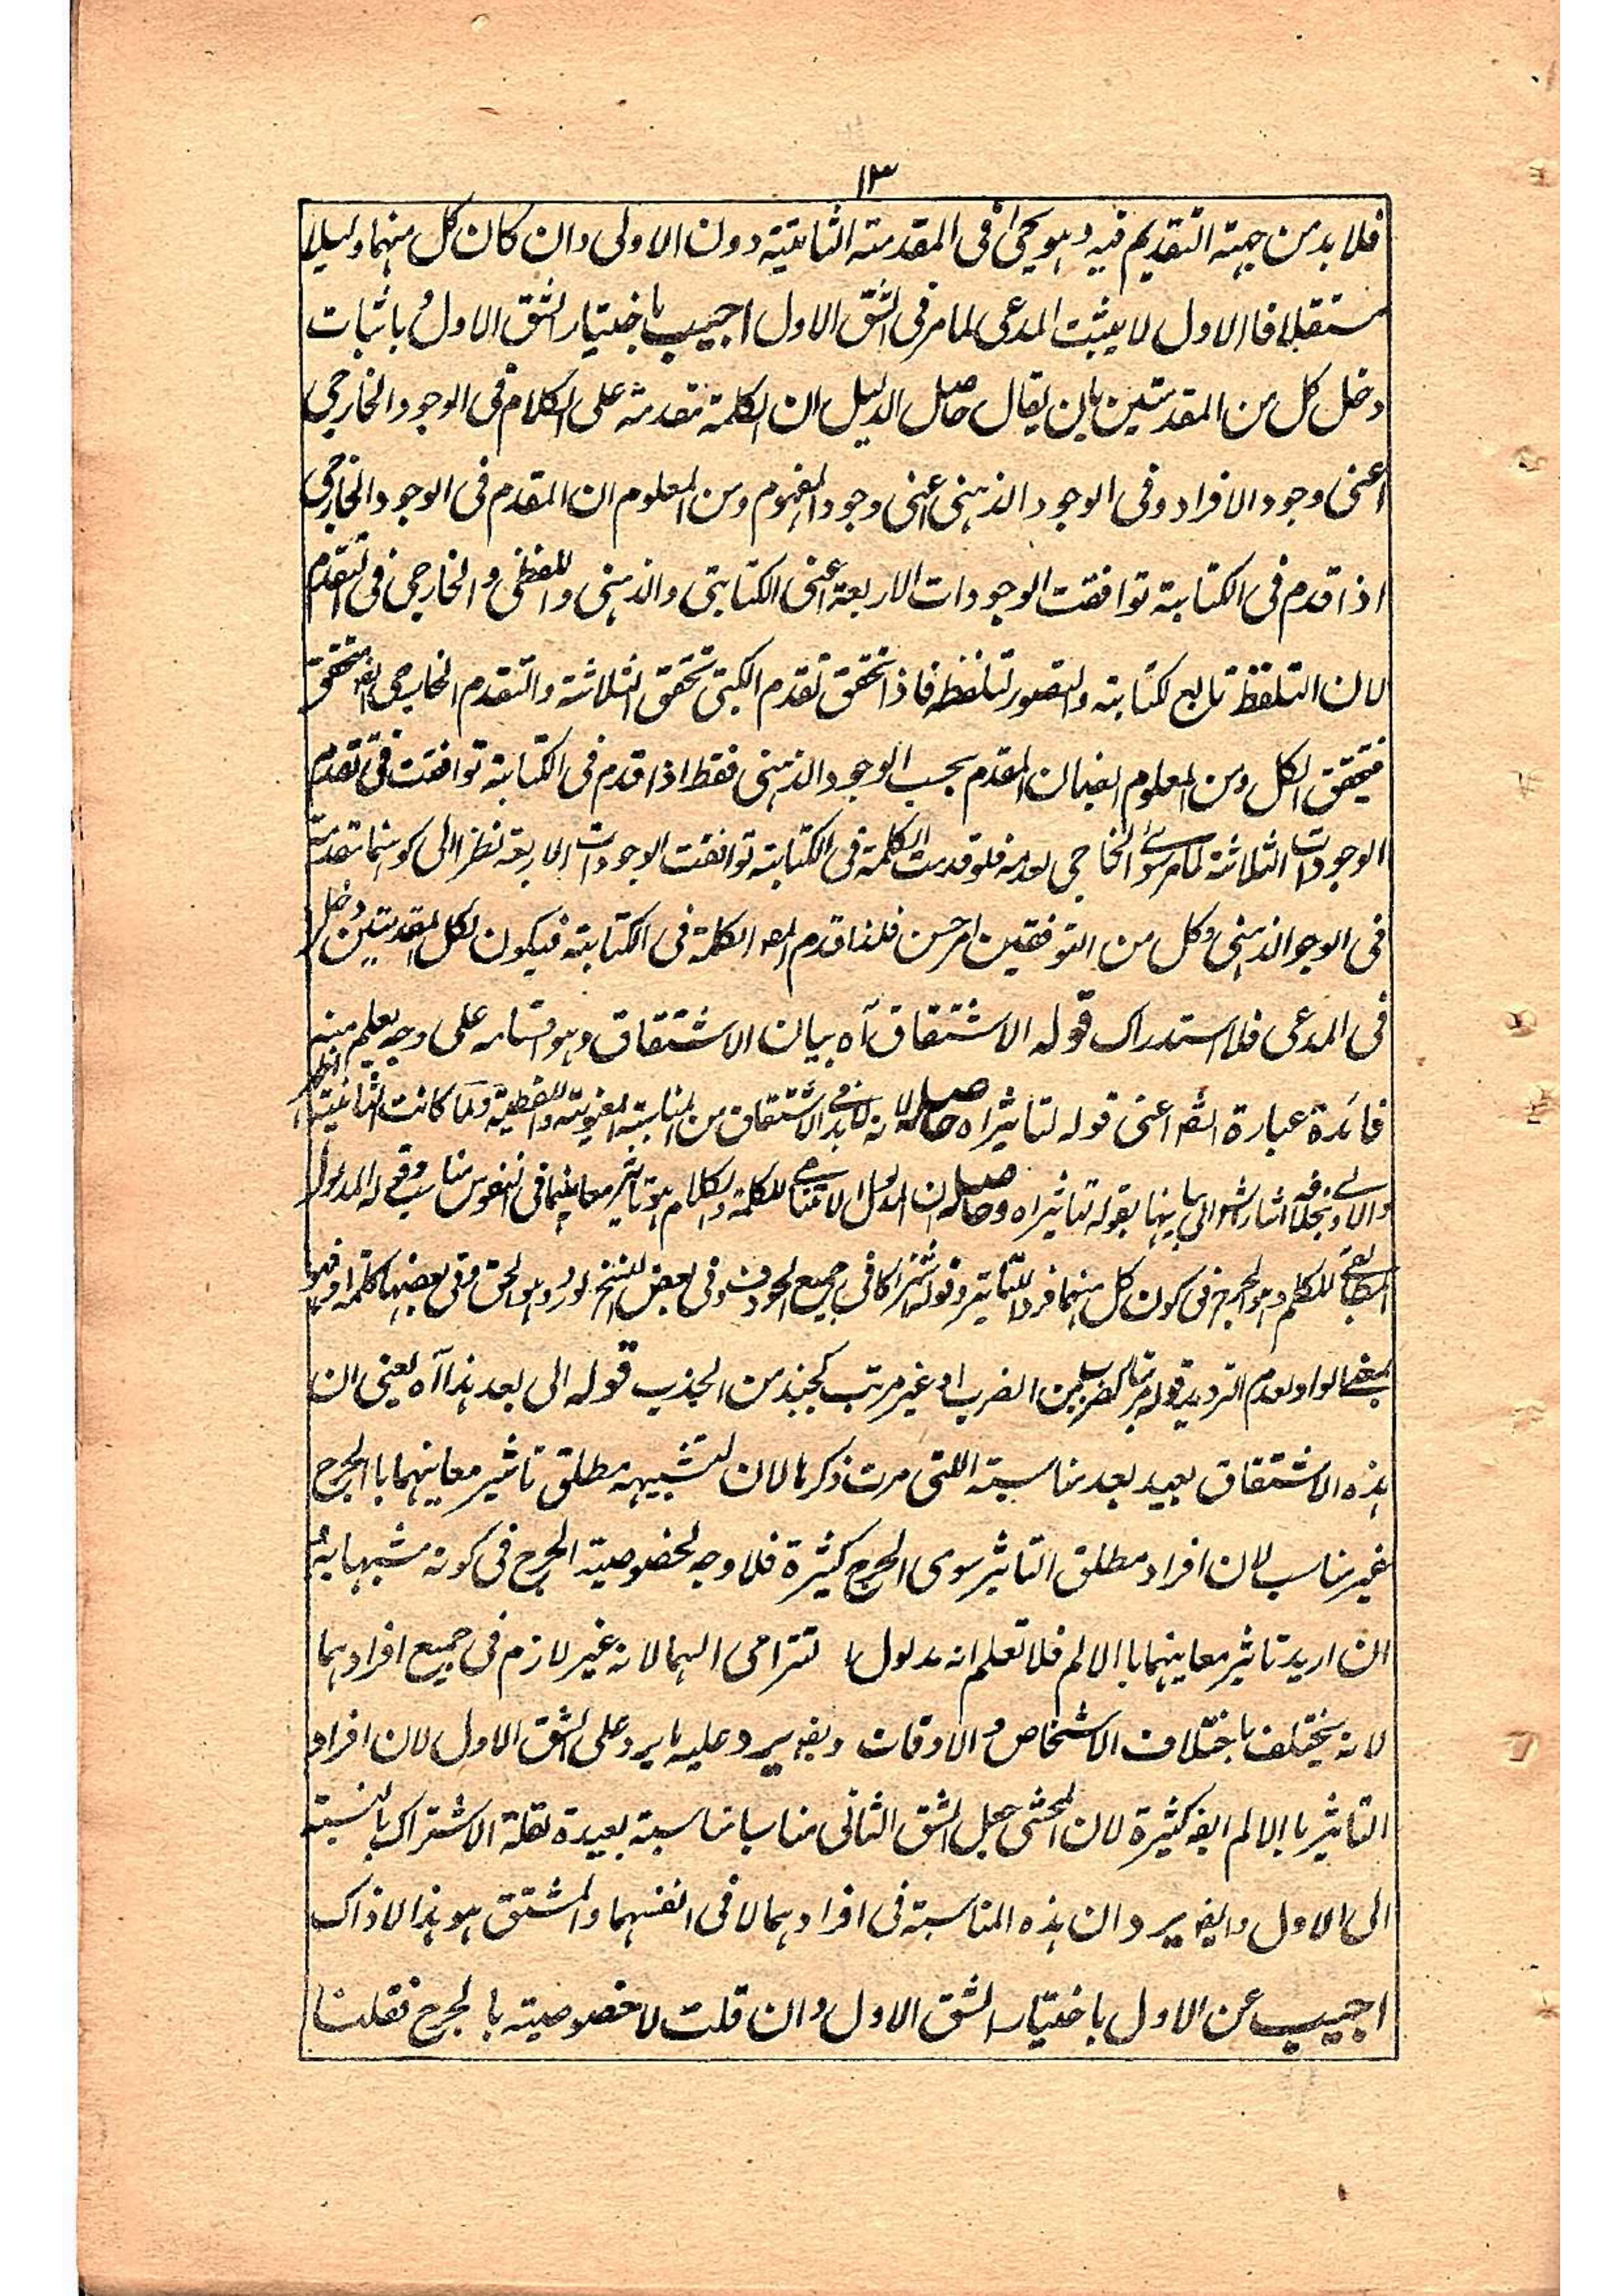 ۱۳
فلا بد من جهة التقديم فيه وهو يجئ في المقدمة الثانية دون الاولى وان كان كل منهما دليلا
مستقلا فالاول لا يثبت المدعى لما مر في الشق الاول اجيب باختيار الشق الاول باثبات
دخل كل من المقدمتين بان يقال حاصل الدليل ان الكلمة متقدمة على الكلام في الوجود الخارجي
اعنى وجود الافراد وفى الوجود الذهنى اعنى وجود المفهوم ومن المعلوم ان المقدم فى الوجود الخارجي
اذا قدم فى الكتابة توافقت الوجودات الاربعة اعنى الكتابتى والذهنى واللفظى والخارجى فى التقدم
لان التلفظ تابع لكتابته والتصور لتلفظه فاذا تحقق تقدم الكتبى تحقق الثلاثة والتقدم الخارجى ايضا متحقق
فيتحقق الكل ومن المعلوم ايضا ان المقدم بحسب الوجود الذهنى فقط اذا قدم فى الكتابة توافقت فى تقدم
الوجودات الثلاثة لما مر سوى الخارجى لعدمه فلو قدمت الكلمة فى الكتابة توافقت الوجودات الاربعة نظرا الى كونها متقدمة
فى الوجو الذهنى وكل من التوفقين امر حسن فلذا قدم المصـ الكلمة فى الكتابة فيكون لكل المقدمتين دخل
فى المدعى فلا استدراك قوله الاشتقاق آه بيان الاشتقاق وهو قسامه على وجه يعلم منه
فائدة عبارة الشـ اعنى قوله لتاثير اه حاصله لانه لا بد فى الاشتقاق من المناسبة المعنوية واللفظية ولما كانت الثانية
بقوله لتاثير اه وحاصله ان المدلول الالتزامى للكلمة والكلام هو تاثير معانيهما فى النفوس مناسب
المطابقى للكلم وهو الجرح فى كون كل منهما فردا للتاثير وقوله فى جميع الحروف وفى بعض النسخ وهو الحق وفى بعضها كلمة او فهو
بمعنى الواو لعدم الترديد قوله كضرب من الضرب او غير مرتب كجبذ من الجذب قوله الى بعد هذا آه يعنى ان
هذه الاشتقاق بعيد بعد مناسبته اللتى مرت ذكرها لان لتشبيهه مطلق تاثير معانيهما باالجرح
غير مناسب لان افراد مطلق التاثير سوى الجرح كثيرة فلا وجه لخصوصية الجرح فى كونه مشبها به
ان اريد تاثير معانيهما باالالم فلا تعلم انه مدلول التزامى اليهما لانه غير لازم فى جميع افرادهما
لانه يختلف باختلاف الاشخاص والاوقات وايضـ يرد عليه ما يرد على الشق الاول لان افراد
التاثير باالالم ايضـ كثيرة لان المحشى جعل الشق الثانى مناسبا مناسبة بعيدة لقلة الاشتراك بالنسبة
الى الاول وايضـ يرد ان هذه المناسبة فى افرادهما لا فى انفسهما والمشتق هو هذا لا ذاك
اجيب عن الاول باختيار الشق الاول وان قلت لا خصوصية بالجرح فقلنا